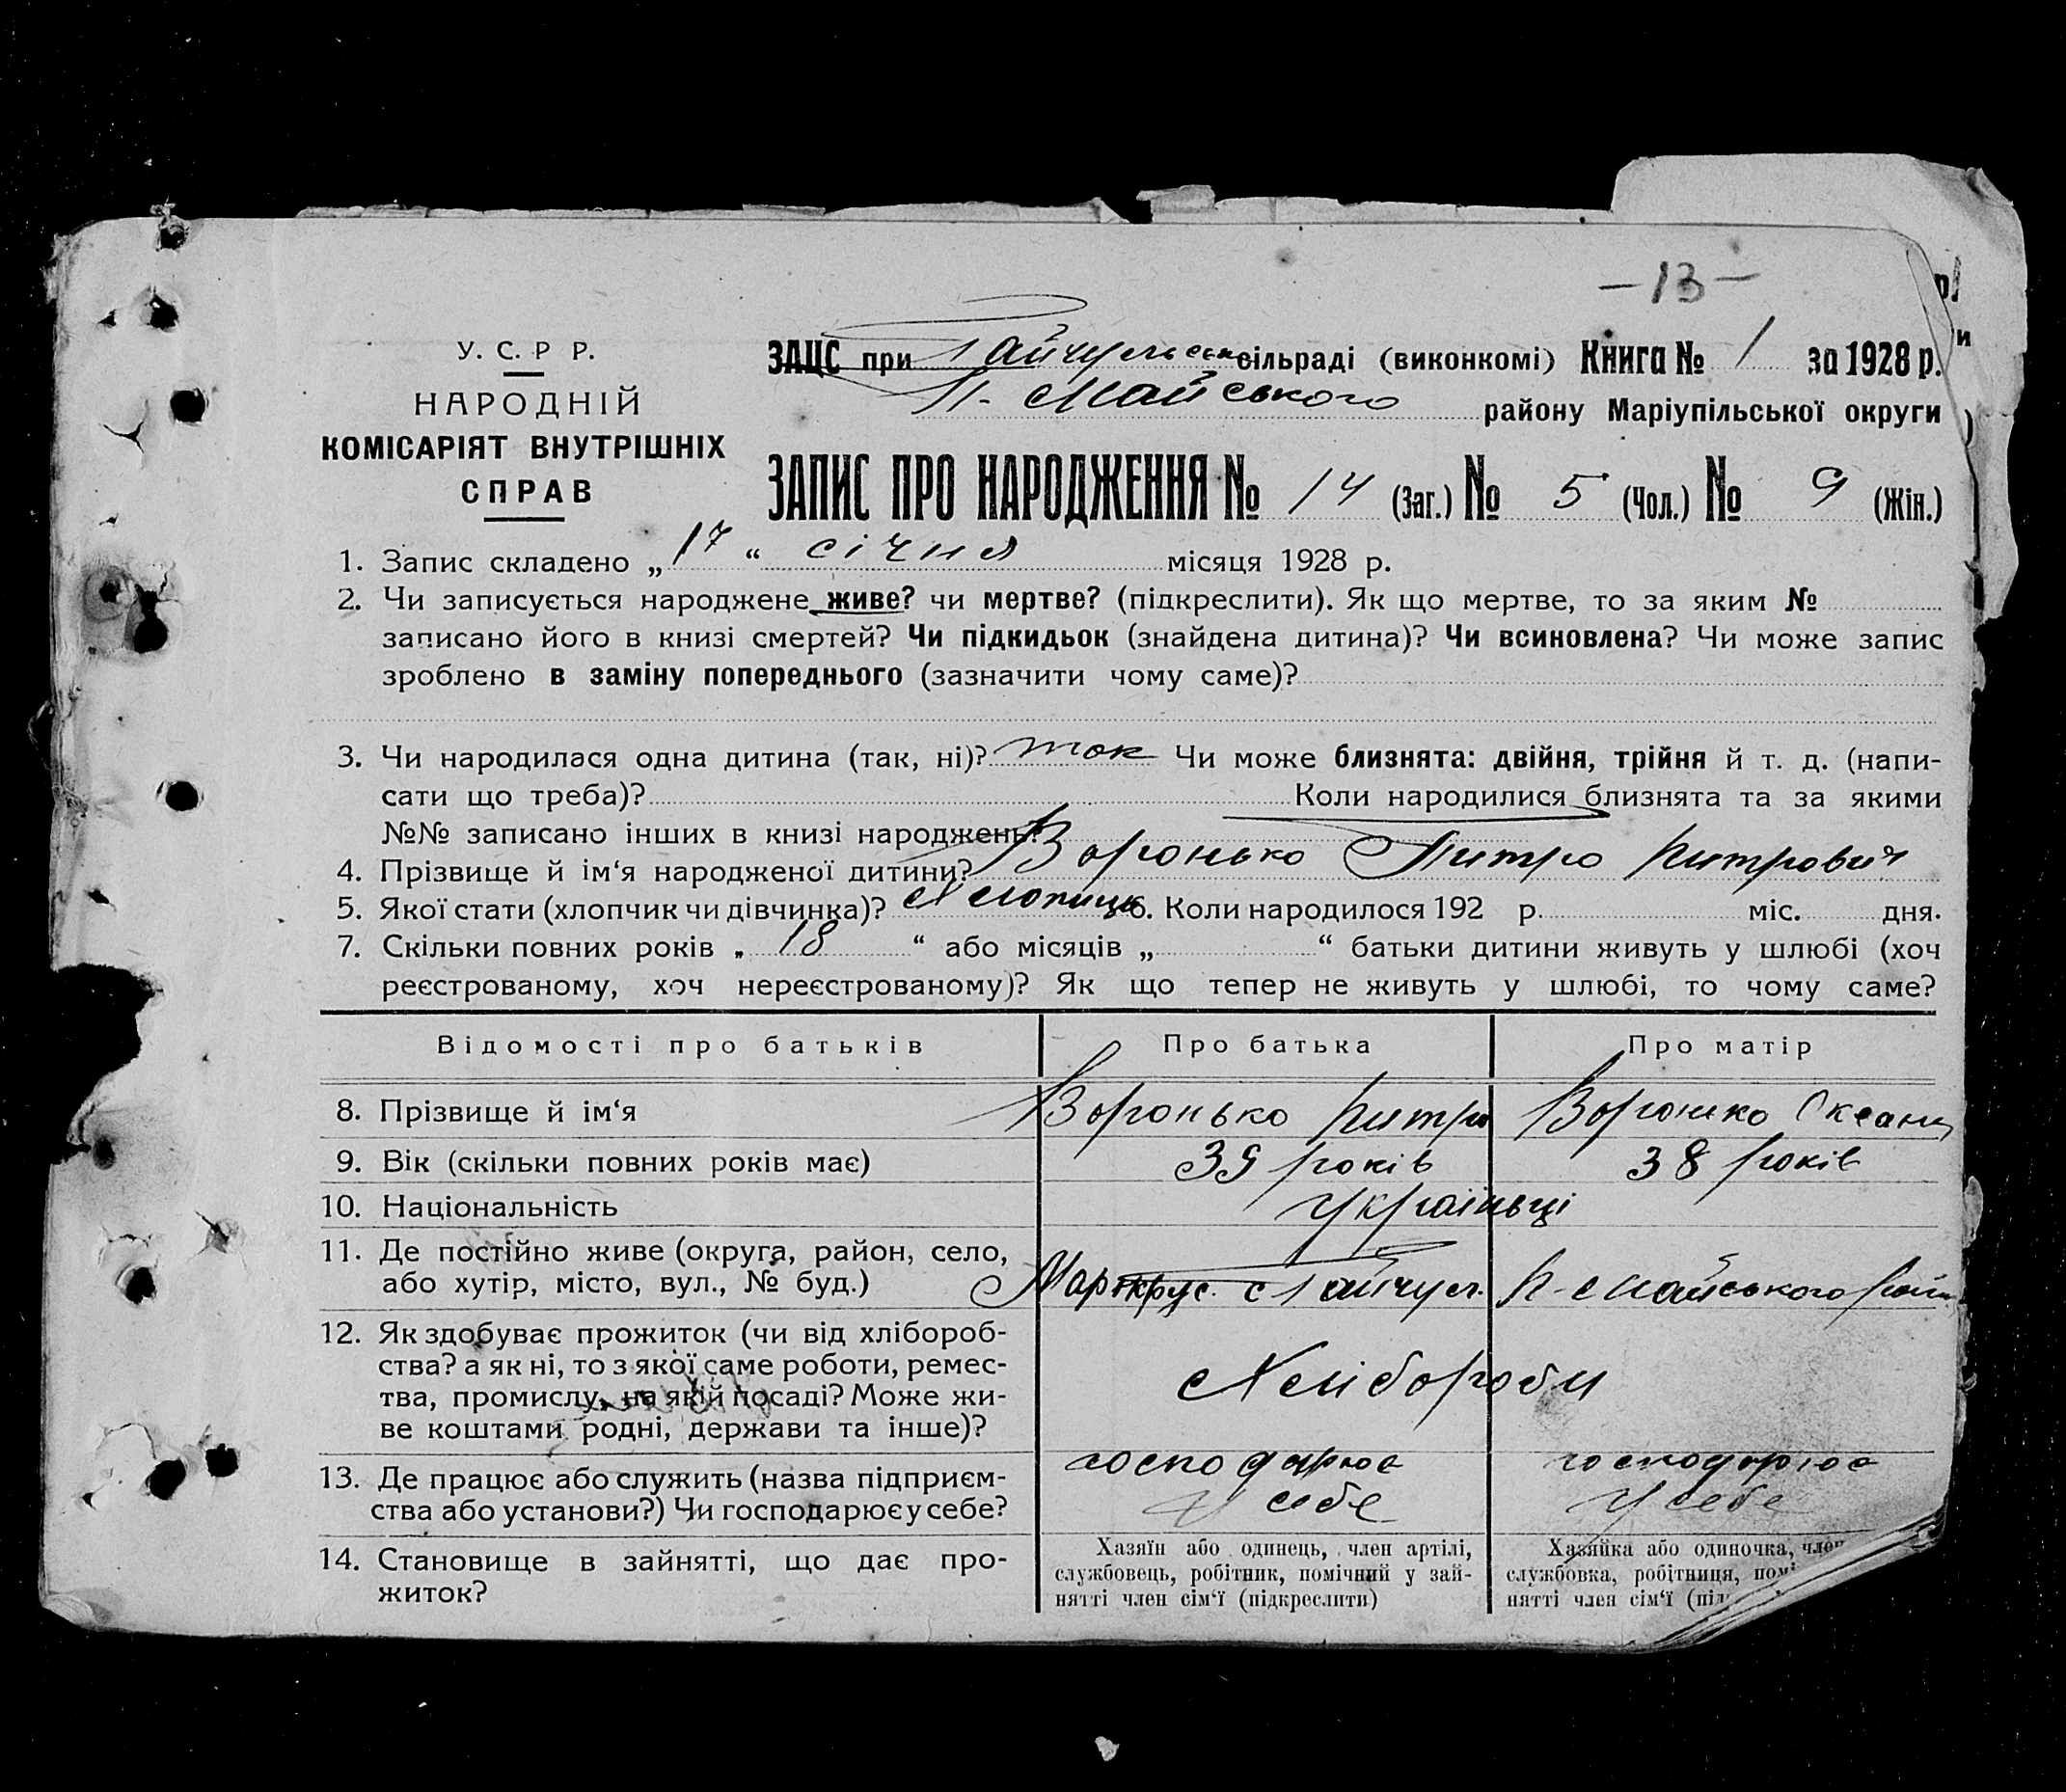 – 13 –
У. С. Р Р.
НАРОДНІЙ
КОМІСАРІЯТ ВНУТРІШНІХ
СПРАВ
ЗАЦС при Гайчульській сільраді (виконкомі) Книга № 1 за 1928 р.
П-Майського району Маріупільської округи
ЗАПИС ПРО НАРОДЖЕННЯ № 14 (Заг.) № 5 (Чол.) № 9 (Жін.)
1. Запис складено „ 17 “ січня місяця 1928 р.
2. Чи записується народжене живе? чи мертве? (підкреслити). Як що мертве, то за яким №
записано його в книзі смертей? Чи підкидьок (знайдена дитина)? Чи всиновлена? Чи може запис
зроблено в заміну попереднього (зазначити чому саме)?
3. Чи народилася одна дитина (так, ні)? так Чи може близнята: двійня, трійня й т. д. (напи-
сати що треба)? Коли народилися близнята та за якими
№№ записано інших в книзі народжень?
4. Прізвище й ім‘я народженої дитини? Воронько Питро Питрович
5. Якої стати (хлопчик чи дівчинка)? Хлопиць 6. Коли народилося 192 р. міс. дня.
7. Скільки повних років „ 18 “ або місяців „ “ батьки дитини живуть у шлюбі (хоч
реєстрованому, хоч нереєстрованому)? Як що тепер не живуть у шлюбі, то чому саме?
Відомості про батьків Про батька Про матір
8. Прізвище й ім‘я Воронько Питро Воронько Оксана
9. Вік (скільки повних років має) 39 років 38 років
10. Національність Україньці
11. Де постійно живе (округа, район, село,
або хутір, місто, вул., № буд.) Маріокруг. с Гайчул. П-Майського район
12. Як здобуває прожиток (чи від хлібороб-
ства? а як ні, то з якої саме роботи, ремес-
тва, промислу, на якій посаді? Може жи-
ве коштами родні, держави та інше)? Хлібороби
13. Де працює або служить (назва підприєм-
ства або установи?) Чи господарює у себе? господарює у себе господарює у себе
14. Становище в зайнятті, що дає про-
житок?
Хазяїн або одинець, член артілі,
службовець, робітник, помічний у зай-
нятті член сім‘ї (підкреслити)
Хазяйка або одиночка, член
службовка, робітниця,
нятті член сім‘ї